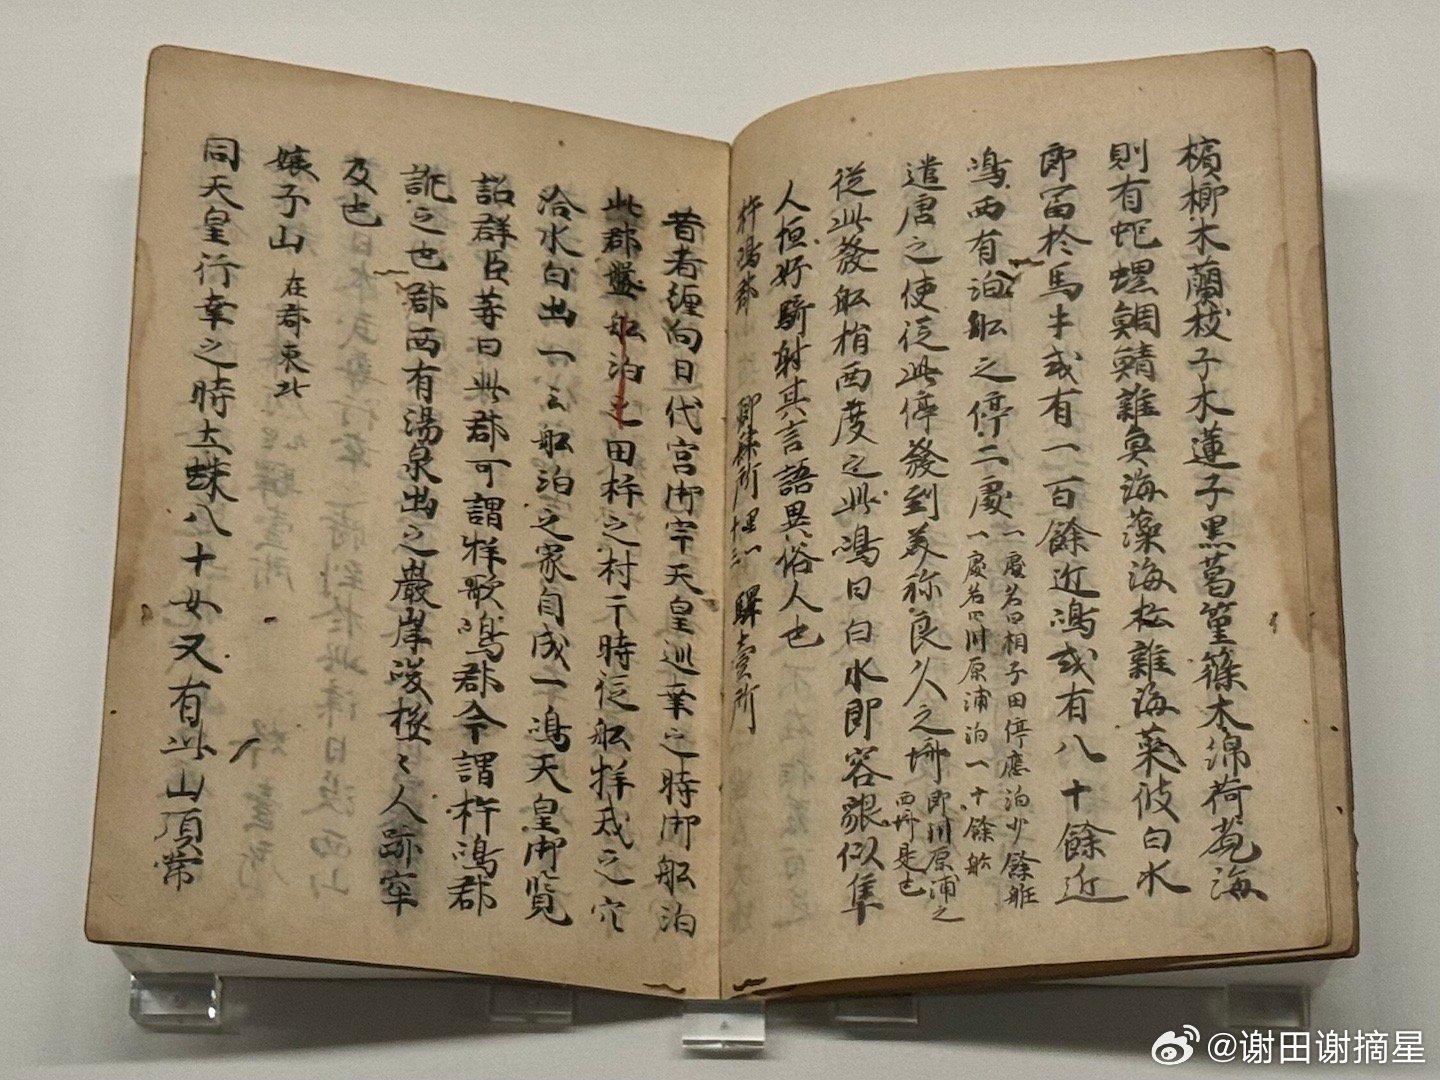 檳榔木蘭枝子木蓮子黒葛篁篠木綿荷莧海
則有蚫螺鯛鯖雜魚海藻海松雜海菜彼白水
郎冨於馬牛或有一百餘近嶋或有八十餘近
嶋西有泊舩之停二處一處名曰相子田停應泊廿餘舩
一處名曰川原浦泊一十餘舩
遣唐之使従此停發到美祢良久之埼即川原浦之
西埼是也
従此發舩指西度之此嶋白水郎容㒵似隼
人恒好騎射其言語異俗人也
杵嶋郡 郷肆所 里一十三 驛壹所
昔者纏向日代宮御宇天皇巡幸之時御舩泊
此郡盤 舩泊之田杵之村于時従舩牂戓之穴
冷水自出一云舩泊之處自成一嶋天皇御覧
詔群臣等曰此郡可謂牂歌嶋郡今謂杵嶋郡
訛之也郡西有湯泉出之巖岸峻極々人跡罕
及也
孃子山 在郡東北
同天皇行幸之時土蛛八十女又有此山頂常
@谢田谢摘星